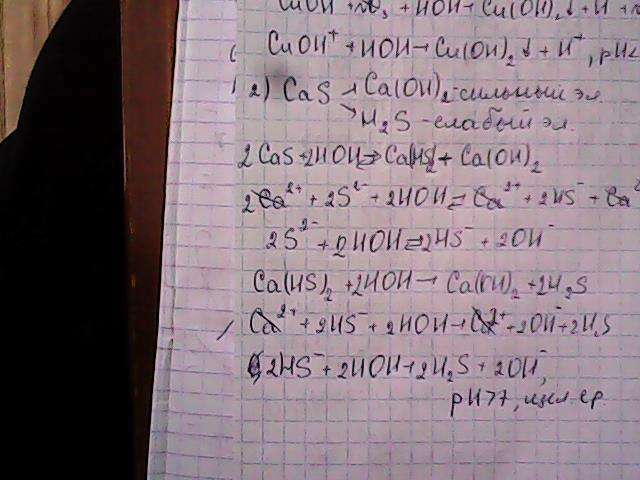 CuOH + NO₃ + HOH → Cu(OH)₂↓ + H +
CuOH⁺ + HOH → Cu(OH)₂↓ + H⁺, pH<
2) CaS → Ca(OH)₂-сильный эл.
→ H₂S - слабый эл.
2CaS + 2HOH ⇌ Ca(HS)₂ + Ca(OH)₂
2Ca²⁺ + 2S²⁻ + 2HOH ⇌ Ca²⁺ + 2HS⁻ + Ca²
2S²⁻ + 2HOH ⇌ 2HS⁻ + 2OH⁻
Ca(HS)₂ + 2HOH → Ca(OH)₂ + 2H₂S
Ca²⁺ + 2HS⁻ + 2HOH → Ca²⁺ + 2OH⁻ + 2H₂S
2HS⁻ + 2HOH → 2H₂S + 2OH⁻,
pH>7, щел. ср.